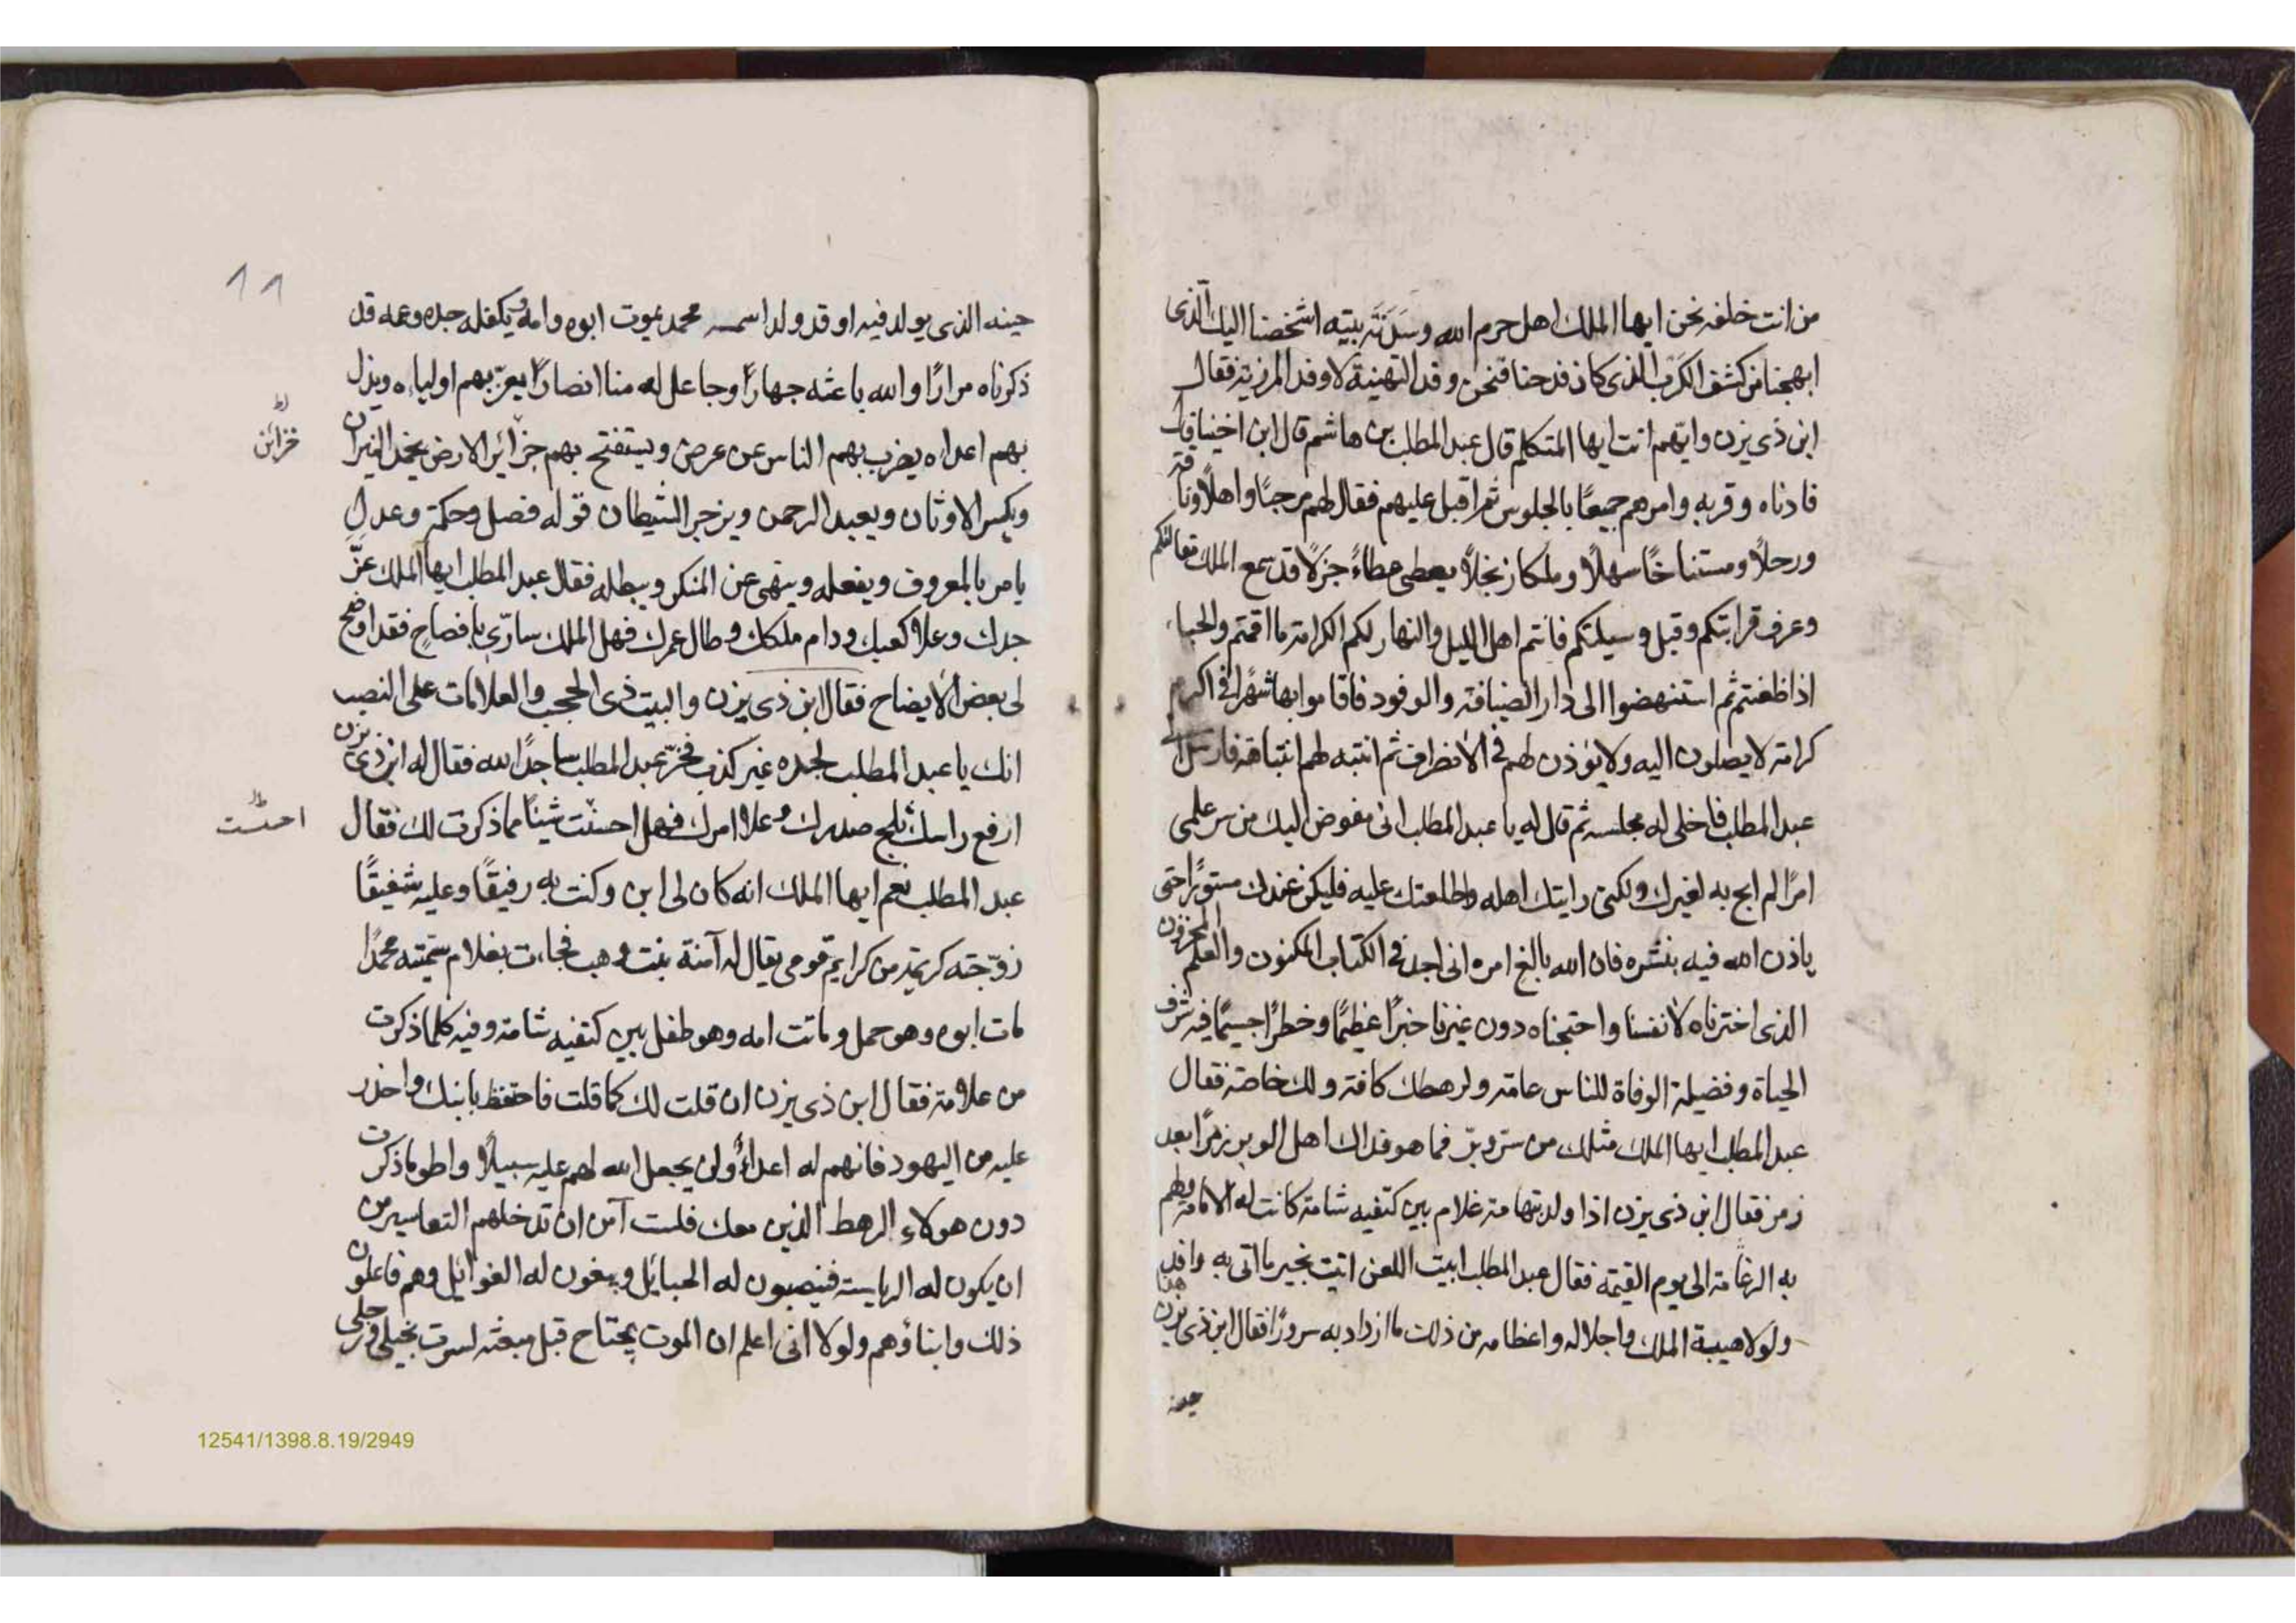 من انت خلفه نحن ايها الملك اهل حرم الله وسَدَنَة بيته اشخصنا اليك الّذى
ابهجنا من كشف الكَرْب الذى كان فدحنا فنحن وفد التهنية لا وفد المرزية فقال
ابن ذى يزن وايّهم انت ايها المتكلم قال عبد المطلب بن هاشم قال ابن اختنا قال
فادناه وقربه وامرهم جميعًا بالجلوس ثم اقبل عليهم فقال لهم مرحبًا واهلًا وناقة
ورحلًا ومستناخًا سهلًا وملكا نجلًا يعطى عطاءً جزلًا قد سمع الملك مقالتكم
وعرف قرابتكم وقبل وسيلتكم فانتم اهل الليل والنهار لكم الكرامة ما اقمتم والحباء
اذا ظعنتم ثم استنهضوا الى دار الضيافة والوفود فاقاموا بها شهرًا فى اكرم
كرامة لا يصلون اليه ولا يؤذن لهم فى الانصراف ثم انتبه لهم انتباهة فارسل الى
عبد المطلب فاخلى له مجلسه ثم قال له يا عبد المطلب انى مفوض اليك من سر علمى
امرًا لم ابح به لغيرك ولكنى رايتك اهله واطلعتك عليه فليكن عندك مستورًا حتى
ياذن الله فيه بنشره فان الله بالغ امره انى اجد فى الكتاب المكنون والعلم المخزون
الذى اخترناه لانفسنا واحتجناه دون غيرنا خبرًا عظيمًا وخطرًا جسيمًا فيه شرف
الحياة وفضيلة الوفاة للناس عامة ولرهطك كافة ولك خاصة فقال
عبد المطلب ايها الملك مثلك من سرّ وبرّ فما هو فداك اهل الوبر زمرًا بعد
زمر فقال ابن ذى يزن اذا ولد بتهامة غلام بين كتفيه شامة كانت له الامامة ولهم
به الزعامة الى يوم القيمة فقال عبد المطلب ابيت اللعن اتيت بخبر ما اتى به وافد
ولولا هيبة الملك واجلاله واعظامه من ذلك ما ازداد به سرورًا فقال ابن ذى يزن هذا
حينه
١١
حينه الذى يولد فيه او قد ولد اسمه محمد يموت ابوه وامه ويكفله جده وعمه قد
ذكرناه مرارًا والله باعثه جهارًا وجاعل له منا انصارًا يعزّ بهم اولياءه ويذل
بهم اعداءه يضرب بهم الناس عن عرض ويستفتح بهم جزائر الارض يخمد النيران
خزائن
ويكسر الاوثان ويعبد الرحمن ويزجر الشيطان قوله فصل وحكمة وعدل
يامر بالمعروف ويفعله وينهى عن المنكر ويبطله فقال عبد المطلب ايها الملك عزّ
جدك وعلا كعبك ودام ملكك وطال عمرك فهل الملك سارّى بافصاح فقد اوضح
لى بعض الايضاح فقال ابن ذى يزن والبيت ذى الحجب والعلامات على النصب
انك يا عبد المطلب لجده غير كذب فخرّ عبد المطلب ساجدًا لله فقال له ابن ذى يزن
ارفع راسك ثلج صدرك وعلا امرك فهل احسنت شيئًا مما ذكرت لك فقال
احسست
عبد المطلب نعم ايها الملك انه كان لى ابن وكنت به رفيقًا وعليه شفيقًا
زوّجته كريمة من كرايم قومى يقال لها آمنة بنت وهب فجاءت بغلام سمّيته محمدًا
مات ابوه وهو حمل وماتت امه وهو طفل بين كتفيه شامة وفيه كلما ذكرت
من علامة فقال ابن ذى يزن ان قلت لك كما قلت فاحتفظ بابنك واحذر
عليه من اليهود فانهم له اعداءٌ ولن يجعل الله لهم عليه سبيلًا واطو ما ذكرت
دون هولاء الرهط الذين معك فلست آمن ان تدخلهم التعاسير من
ان يكون له الرياسة فينصبون له الحبائل ويبغون له الغوائل وهم فاعلون
ذلك وابناؤهم ولولا انى اعلم ان الموت يجتاح قبل مبعثه لسرت بخيلى ورجلى
12541/1398.8.19/2949